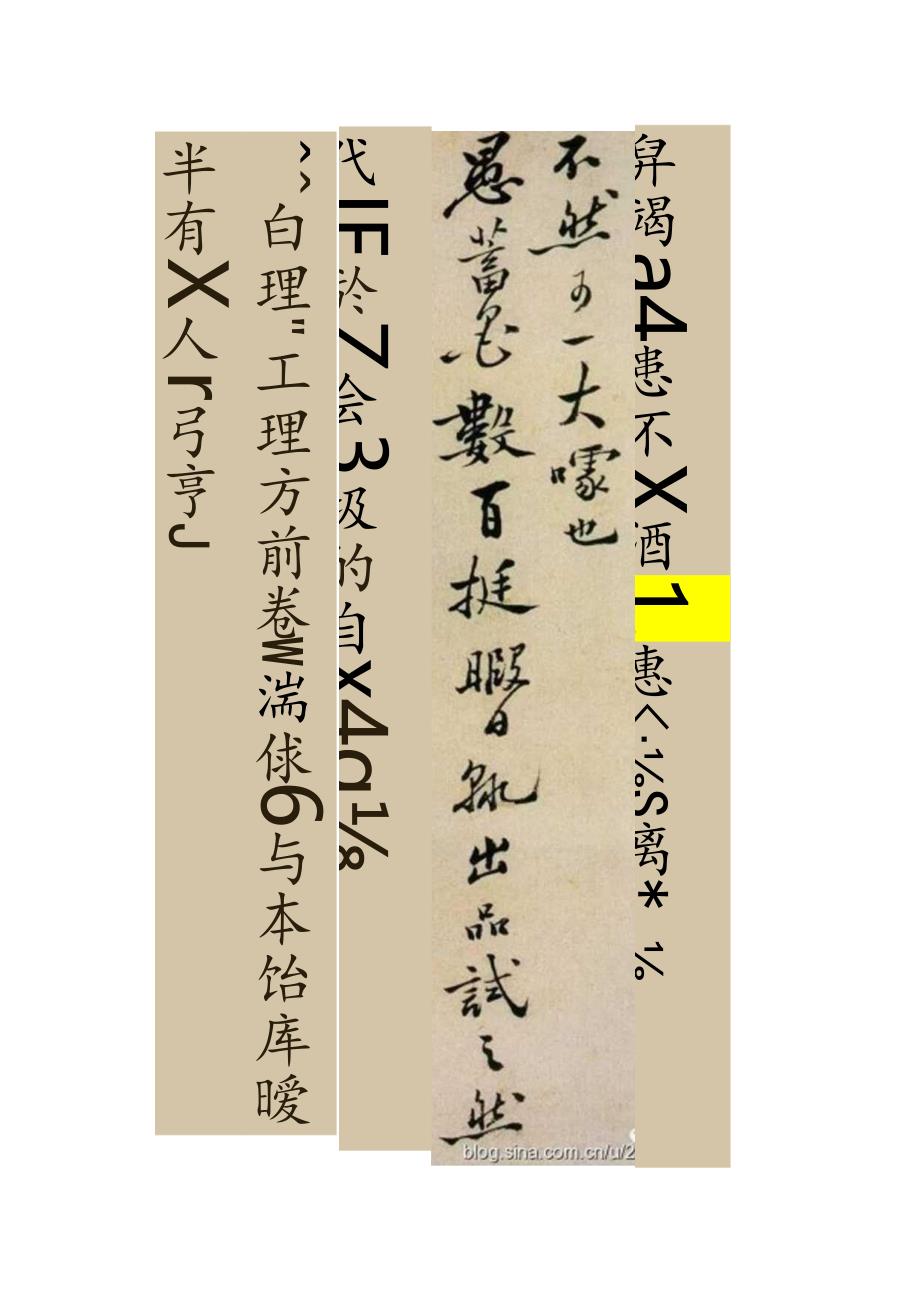 谒a4患不X酒1惠<·⅛S离* ⅛
不然可一大噱也
愚蓄墨數百挺暇日輒出品試之然
代IF於7会3极的自x4g⅛
白理"工理方前卷w湍俅6与本饴库暧
半有X人r弓亨J
blog.sina.com.cn/u/2